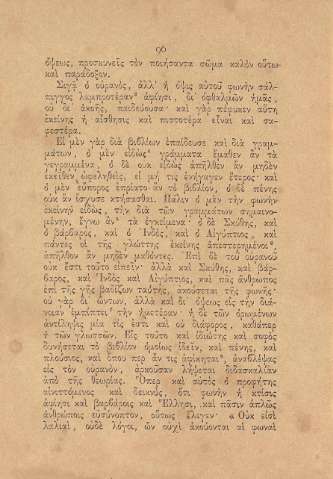 90
ὄψεως, προσκυνεῖς τὸν ποιήσαντα σῶμα καλὸν οὕτω
καὶ παράδοξον.
Σιγᾷ ὁ οὐρανός, ἀλλ' ἡ ὄψις αὐτοῦ φωνὴν σάλ-
πιγγος λαμπροτέραν ἀφίησι, δι' ὀφθαλμῶν ἡμᾶς,
οὐ δι' ἀκοῆς, παιδεύουσα· καὶ γὰρ πέφυκεν αὕτη
ἐκείνης ἡ αἴσθησις καὶ πιστοτέρα εἶναι καὶ σα-
φεστέρα.
Εἰ μὲν γὰρ διὰ βιβλίων ἐπαίδευσε καὶ διὰ γραμ-
μάτων, ὁ μὲν εἰδὼς γράμματα ἔμαθεν ἂν τὰ
γεγραμμένα, ὁ δὲ οὐκ εἰδὼς ἀπῆλθεν ἂν μηδὲν
ἐκεῖθεν ὠφεληθείς, εἰ μή τις ἐνήγαγεν ἕτερος· καὶ
ὁ μὲν εὔπορος ἐπρίατο ἂν τὸ βιβλίον, ὁ δὲ πένης
οὐκ ἂν ἴσχυσε κτήσασθαι. Πάλιν ὁ μὲν τὴν φωνὴν
ἐκείνην εἰδώς, τὴν διὰ τῶν γραμμάτων σημαινο-
μένην, ἔγνω ἂν τὰ ἐγκείμενα· ὁ δὲ Σκύθης, καὶ
ὁ βάρβαρος, καὶ ὁ Ἰνδός, καὶ ὁ Αἰγύπτιος, καὶ
πάντες οἱ τῆς γλώττης ἐκείνης ἀπεστερημένοι,
ἀπῆλθον ἂν μηδὲν μαθόντες. Ἐπὶ δὲ τοῦ οὐρανοῦ
οὐκ ἔστι τοῦτο εἰπεῖν· ἀλλὰ καὶ Σκύθης, καὶ βάρ-
βαρος, καὶ Ἰνδὸς καὶ Αἰγύπτιος, καὶ πᾶς ἄνθρωπος
ἐπὶ τῆς γῆς βαδίζων ταύτης, ἀκούσεται τῆς φωνῆς·
οὐ γὰρ δι' ὤτων, ἀλλὰ καὶ δι' ὄψεως εἰς τὴν διά-
νοιαν ἐμπίπτει τὴν ἡμετέραν· ἡ δὲ τῶν ὁρωμένων
ἀντίληψις μία τίς ἐστι καὶ οὐ διάφορος, καθάπερ
ἡ τῶν γλωσσῶν. Εἰς τοῦτο καὶ ἰδιώτης καὶ σοφὸς
δυνήσεται τὸ βιβλίον ὁμοίως ἰδεῖν, καὶ πένης, καὶ
πλούσιος, καὶ ὅπου περ ἄν τις ἀφίκηται, ἀναβλέψας
εἰς τὸν οὐρανόν, ἀρκοῦσαν λήψεται διδασκαλίαν
ἀπὸ τῆς θεωρίας. Ὅπερ καὶ αὐτὸς ὁ προφήτης
αἰνιττόμενος καὶ δεικνύς, ὅτι φωνὴν ἡ κτίσις
ἀφίησι καὶ βαρβάροις καὶ Ἕλλησι, καὶ πᾶσιν ἁπλῶς
ἀνθρώποις εὐσύνοπτον, οὕτως ἔλεγεν· «Οὐκ εἰσὶ
λαλιαί, οὐδὲ λόγοι, ὧν οὐχὶ ἀκούονται αἱ φωναὶ